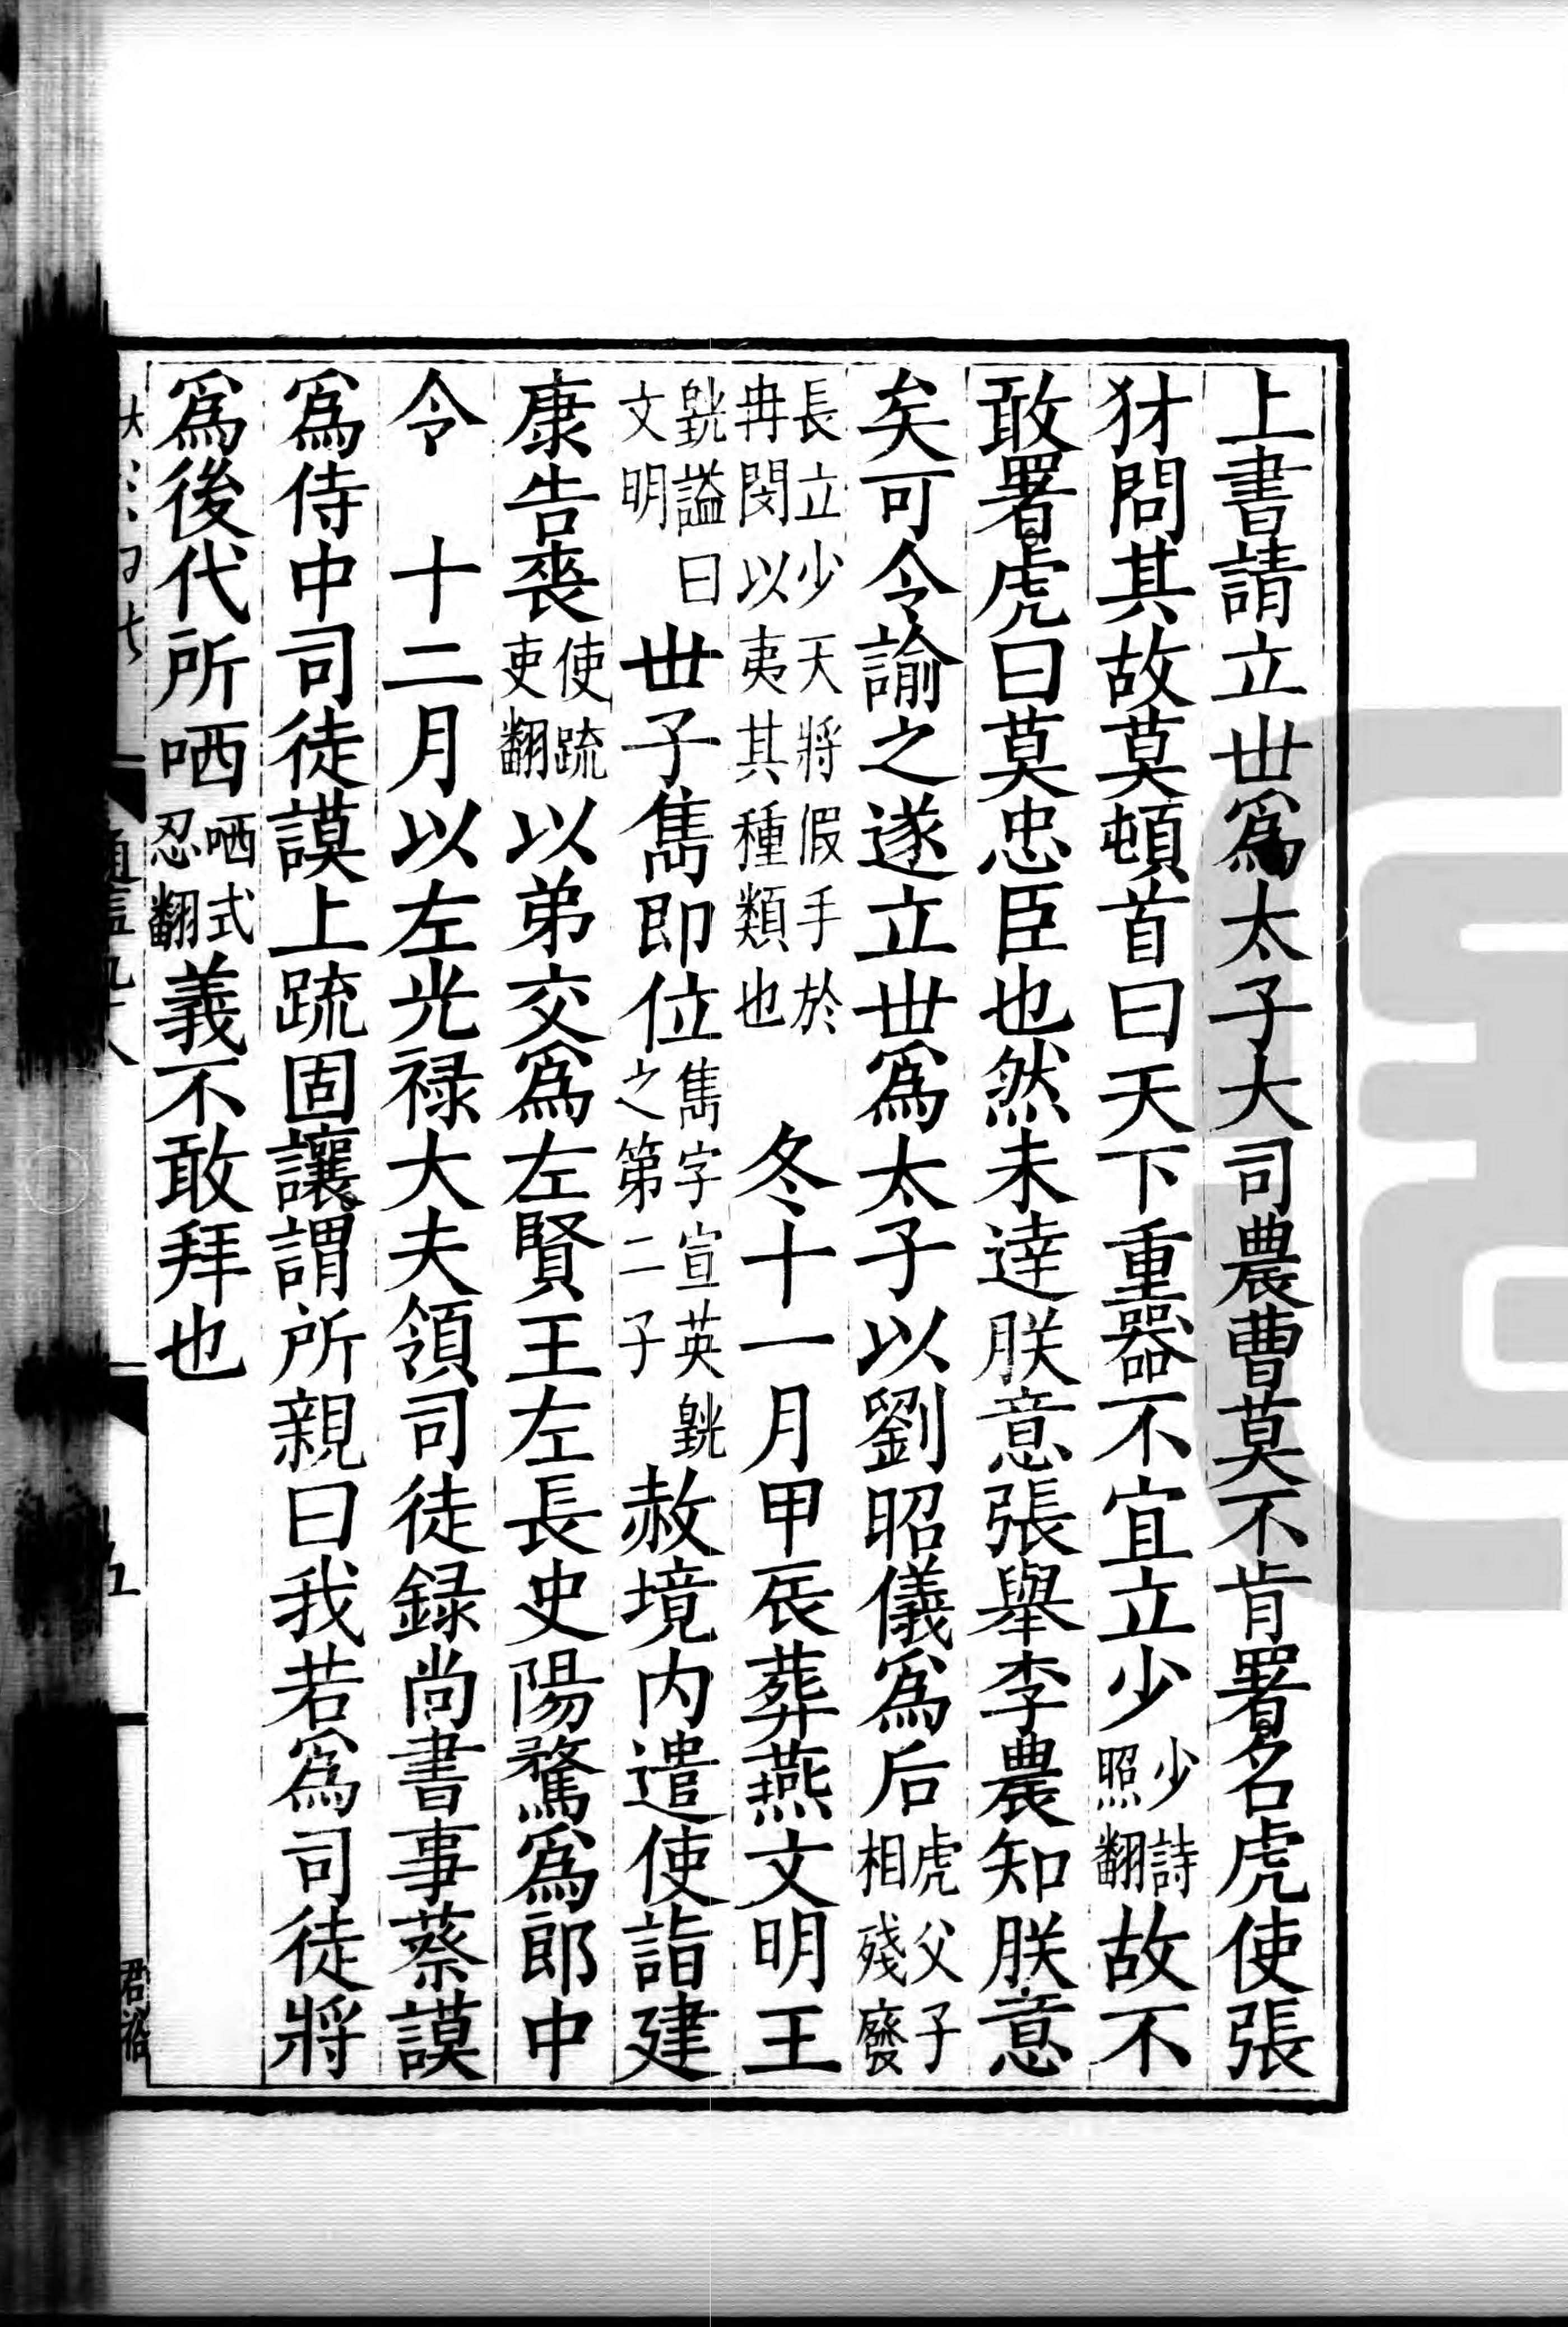 上書請立丗爲太子大司農曹莫不肯署名虎使張
犲問其故莫頓首曰天下重器不宜立少少詩照翻故不
敢署虎曰莫忠臣也然未達朕意張舉李農知朕意
矣可令諭之遂立丗爲太子以劉昭儀爲后虎父子相殘廢
長立少天將假手於冉閔以夷其種類也 冬十一月甲辰葬燕文明王
皝謚曰文明丗子雋即位雋字宣英皝之第二子赦境内遣使詣建
康告喪使疏吏翻以弟交爲左賢王左長史陽騖爲郎中
令 十二月以左光禄大夫領司徒録尚書事蔡謨
爲侍中司徒謨上疏固讓謂所親曰我若爲司徒將
爲後代所哂哂式忍翻義不敢拜也
君裕